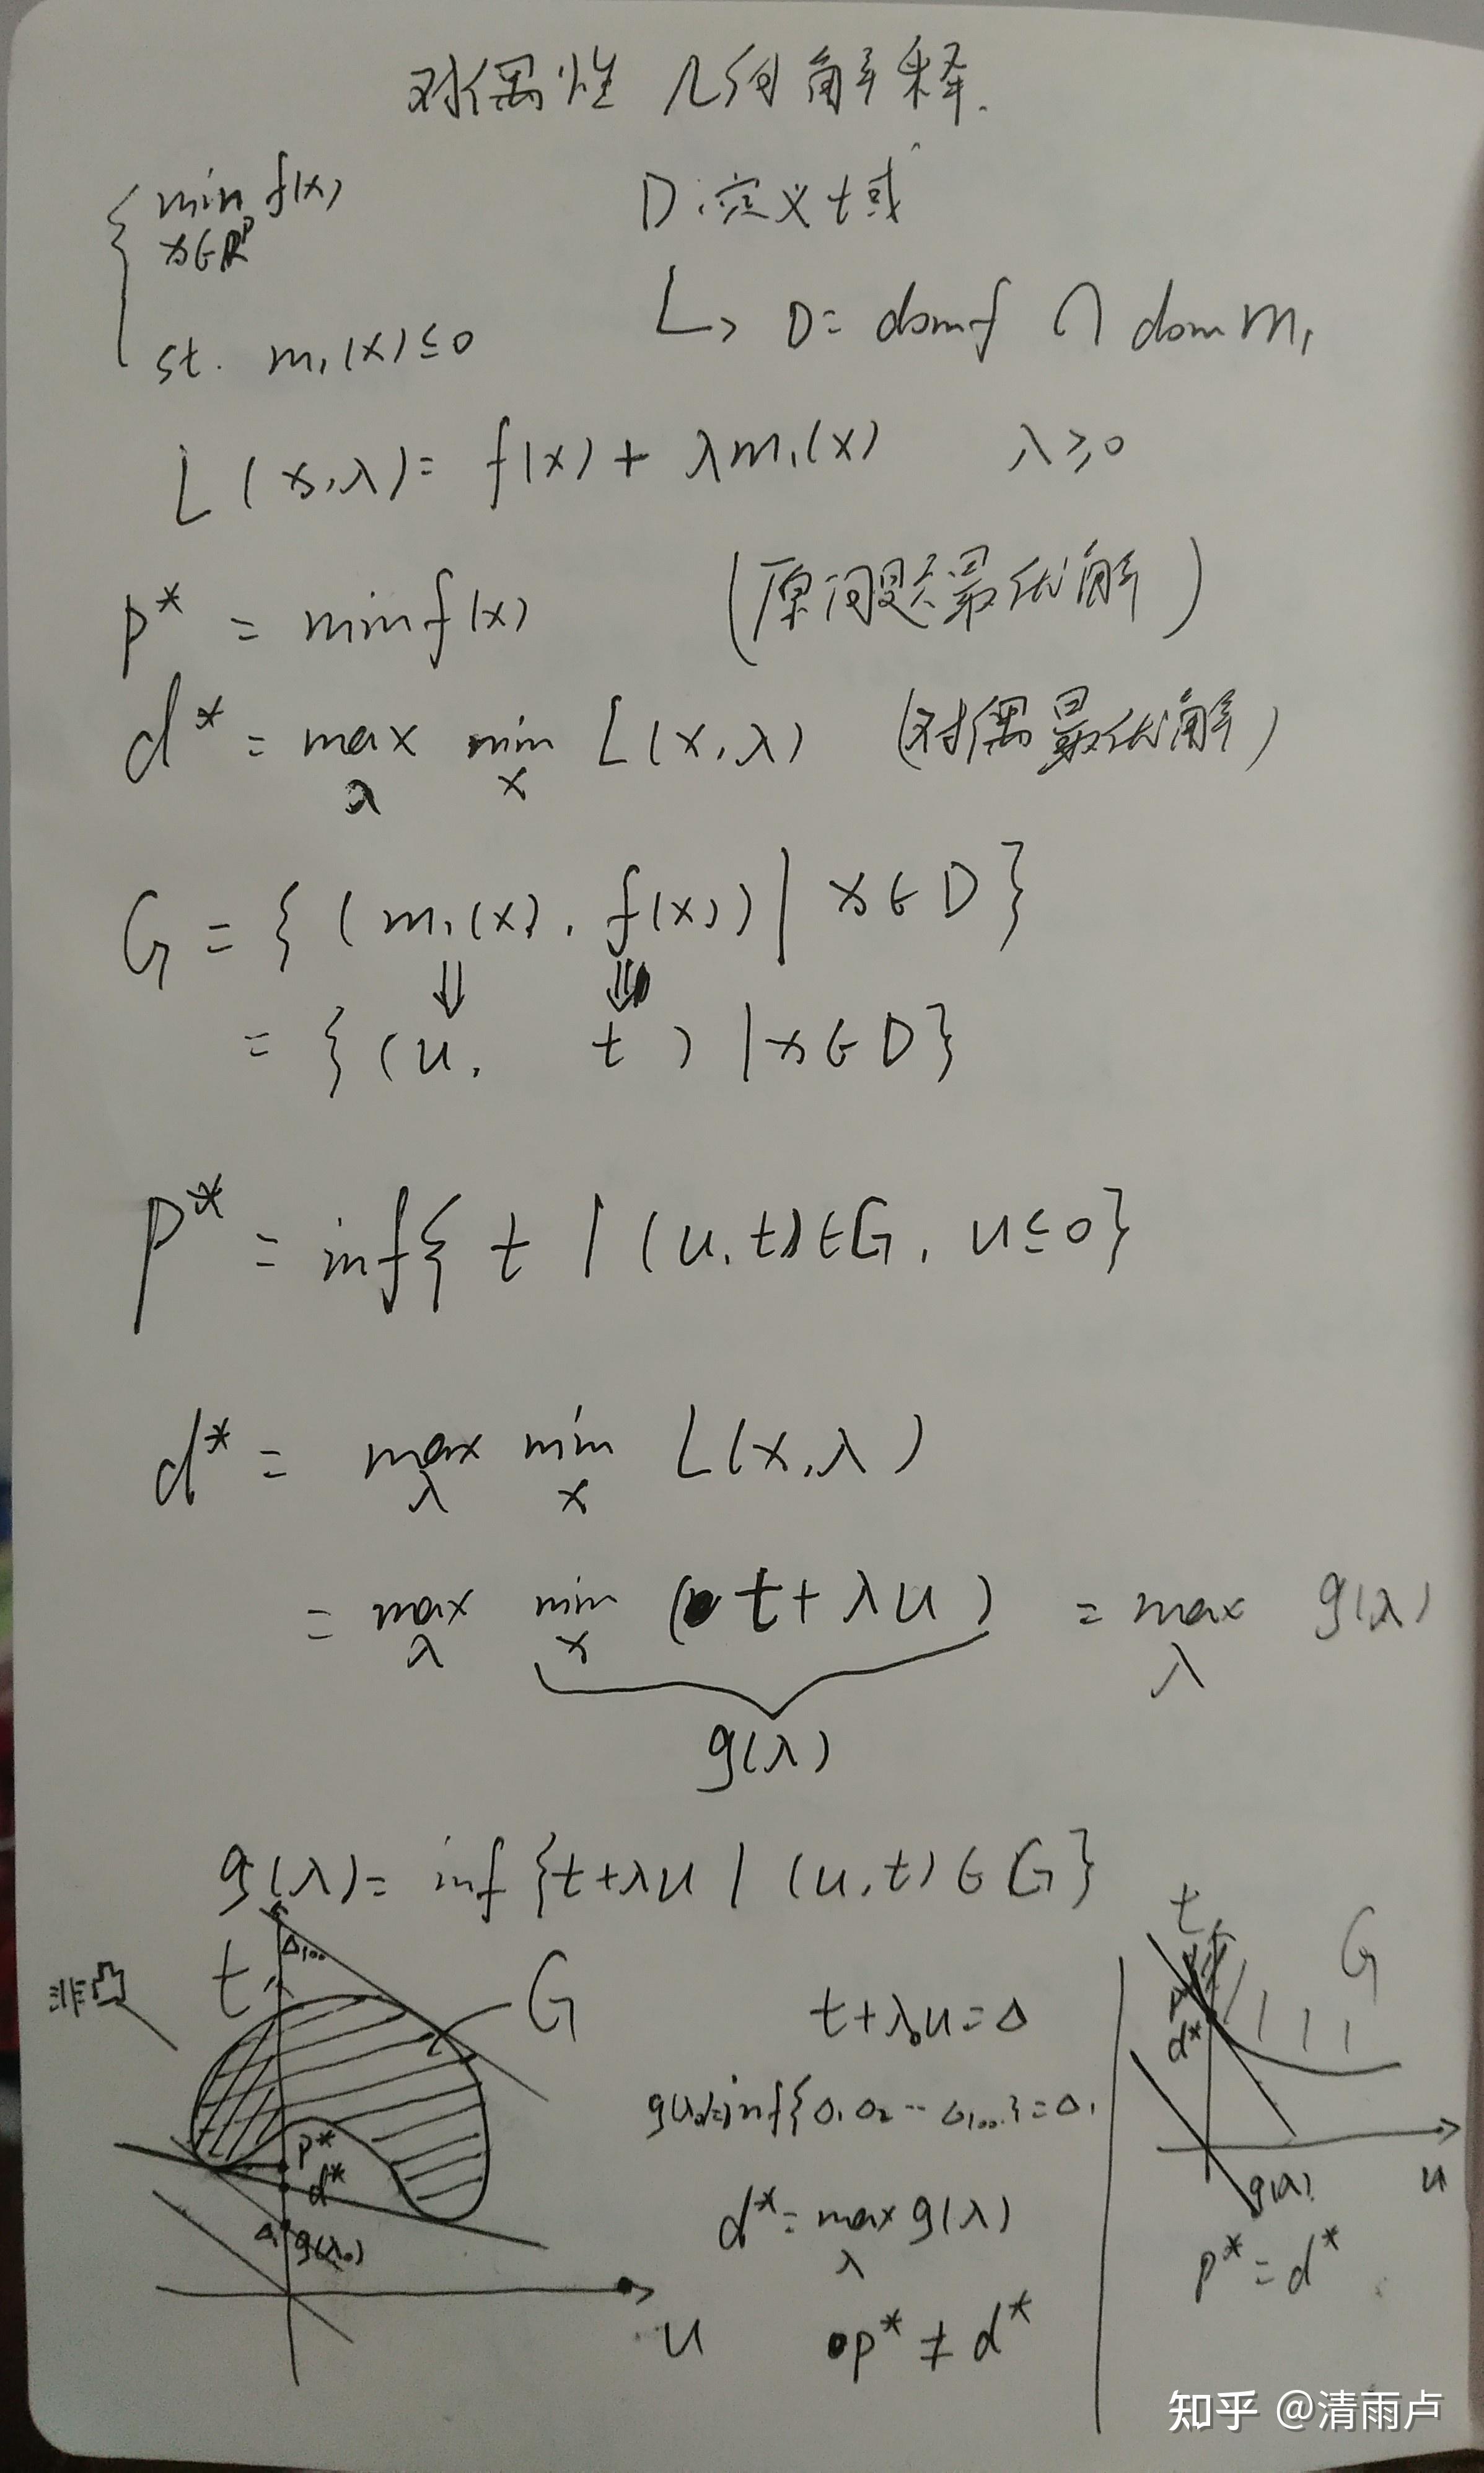 对偶性 几何解释.
min f(x)
x∈R^P
st. m₁(x)≤0
D:定义域
↳ D= domf ∩ dom m₁
L(x,λ)= f(x)+ λm₁(x) λ≥0
p* = min f(x) (原问题最优解)
d* = max min L(x,λ) (对偶最优解)
λ x
G = { (m₁(x), f(x)) | x∈D }
⇓ ⇓
= { (u, t) | x∈D }
P* = inf{ t | (u,t)∈G, u≤0 }
d* = max min L(x,λ)
λ x
= max min ( t+λu ) = max g(λ)
λ x λ
g(λ)
g(λ)= inf {t+λu | (u,t)∈G}
非凸
t
Δ₁₀₀
G
p*
d*
Δ₁ g(λ₀)
u
t+λ₀u=Δ
g(λ₀)=inf{Δ₁ Δ₂ ··· Δ₁₀₀}=Δ₁
d*= max g(λ)
λ
p* ≠ d*
t
G
d*
u
g(λ)
p* = d*
知乎 @清雨卢